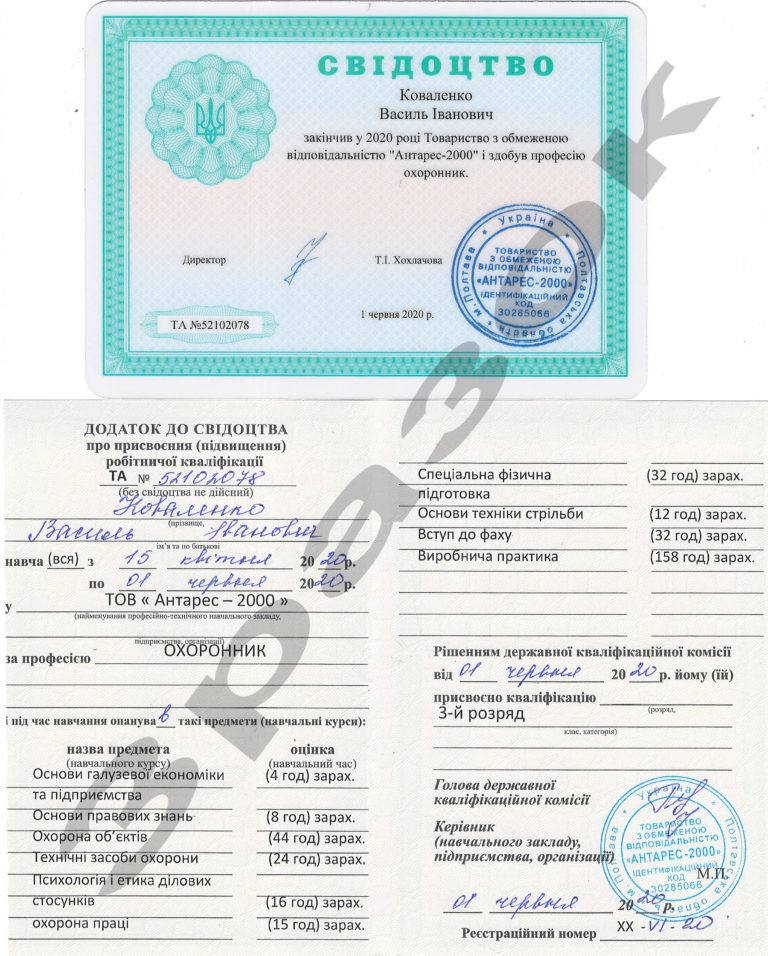 СВІДОЦТВО
Коваленко
Василь Іванович
закінчив у 2020 році Товариство з обмеженою
відповідальністю "Антарес-2000" і здобув професію
охоронник.
Директор
Т.І. Хохлачова
1 червня 2020 р.
ТА №52102078
* Україна * Полтавська область * м. Полтава
ТОВАРИСТВО
З ОБМЕЖЕНОЮ
ВІДПОВІДАЛЬНІСТЮ
«АНТАРЕС-2000»
ІДЕНТИФІКАЦІЙНИЙ
КОД
30285066
Зразок
ДОДАТОК ДО СВІДОЦТВА
про присвоєння (підвищення)
робітничої кваліфікації
ТА № 52102078
(без свідоцтва не дійсний)
Коваленко
(прізвище,
Василь Іванович
ім'я та по батькові
навча (вся) з 15 квітня 2020 р.
по 01 червня 2020 р.
у ТОВ « Антарес – 2000 »
(найменування професійно-технічного навчального закладу,
підприємства, організації)
за професією ОХОРОННИК
і під час навчання опанува в такі предмети (навчальні курси):
назва предмета оцінка
(навчального курсу) (навчальний час)
Основи галузевої економіки (4 год) зарах.
та підприємства
Основи правових знань (8 год) зарах.
Охорона об'єктів (44 год) зарах.
Технічні засоби охорони (24 год) зарах.
Психологія і етика ділових
стосунків (16 год) зарах.
охорона праці (15 год) зарах.
Спеціальна фізична (32 год) зарах.
підготовка
Основи техніки стрільби (12 год) зарах.
Вступ до фаху (32 год) зарах.
Виробнича практика (158 год) зарах.
Рішенням державної кваліфікаційної комісії
від 01 червня 2020 р. йому (їй)
присвоєно кваліфікацію
(розряд,
3-й розряд
клас, категорія)
Голова державної
кваліфікаційної комісії
Керівник
(навчального закладу,
підприємства, організації)
М.П.
* Україна * Полтавська область * м. Полтава
ТОВАРИСТВО
З ОБМЕЖЕНОЮ
ВІДПОВІДАЛЬНІСТЮ
«АНТАРЕС-2000»
ІДЕНТИФІКАЦІЙНИЙ
КОД
30285066
01 червня 2020 р,
Реєстраційний номер XX - VI - 20